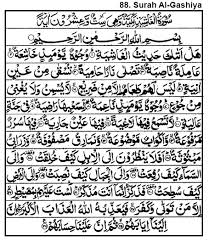 88. Surah Al-Gashiya
سُوْرَةُ الْغَاشِيَةِ مَكِّيَّةٌ وَّهِيَ سِتٌّ وَّعِشْرُوْنَ اٰيَةً
بِسْمِ اللّٰهِ الرَّحْمٰنِ الرَّحِيْمِ
هَلْ اَتٰىكَ حَدِيْثُ الْغَاشِيَةِ وُجُوْهٌ يَّوْمَئِذٍ خَاشِعَةٌ
عَامِلَةٌ نَّاصِبَةٌ تَصْلٰى نَارًا حَامِيَةً تُسْقٰى مِنْ عَيْنٍ
اٰنِيَةٍ لَيْسَ لَهُمْ طَعَامٌ اِلَّا مِنْ ضَرِيْعٍ لَّا يُسْمِنُ وَلَا يُغْنِيْ مِنْ
جُوْعٍ وُجُوْهٌ يَّوْمَئِذٍ نَّاعِمَةٌ لِّسَعْيِهَا رَاضِيَةٌ فِيْ جَنَّةٍ
عَالِيَةٍ لَّا تَسْمَعُ فِيْهَا لَاغِيَةً فِيْهَا عَيْنٌ جَارِيَةٌ فِيْهَا سُرُرٌ
مَّرْفُوْعَةٌ وَّاَكْوَابٌ مَّوْضُوْعَةٌ وَّنَمَارِقُ مَصْفُوْفَةٌ وَّزَرَابِيُّ
مَبْثُوْثَةٌ اَفَلَا يَنْظُرُوْنَ اِلَى الْاِبِلِ كَيْفَ خُلِقَتْ وَاِلَى
السَّمَآءِ كَيْفَ رُفِعَتْ وَاِلَى الْجِبَالِ كَيْفَ نُصِبَتْ وَاِلَى
الْاَرْضِ كَيْفَ سُطِحَتْ فَذَكِّرْ اِنَّمَآ اَنْتَ مُذَكِّرٌ لَسْتَ عَلَيْهِمْ بِمُصَۜيْطِرٍ
اِلَّا مَنْ تَوَلّٰى وَكَفَرَ فَيُعَذِّبُهُ اللّٰهُ الْعَذَابَ الْاَكْبَرَ اِنَّ
اِلَيْنَآ اِيَابَهُمْ ثُمَّ اِنَّ عَلَيْنَا حِسَابَهُمْ